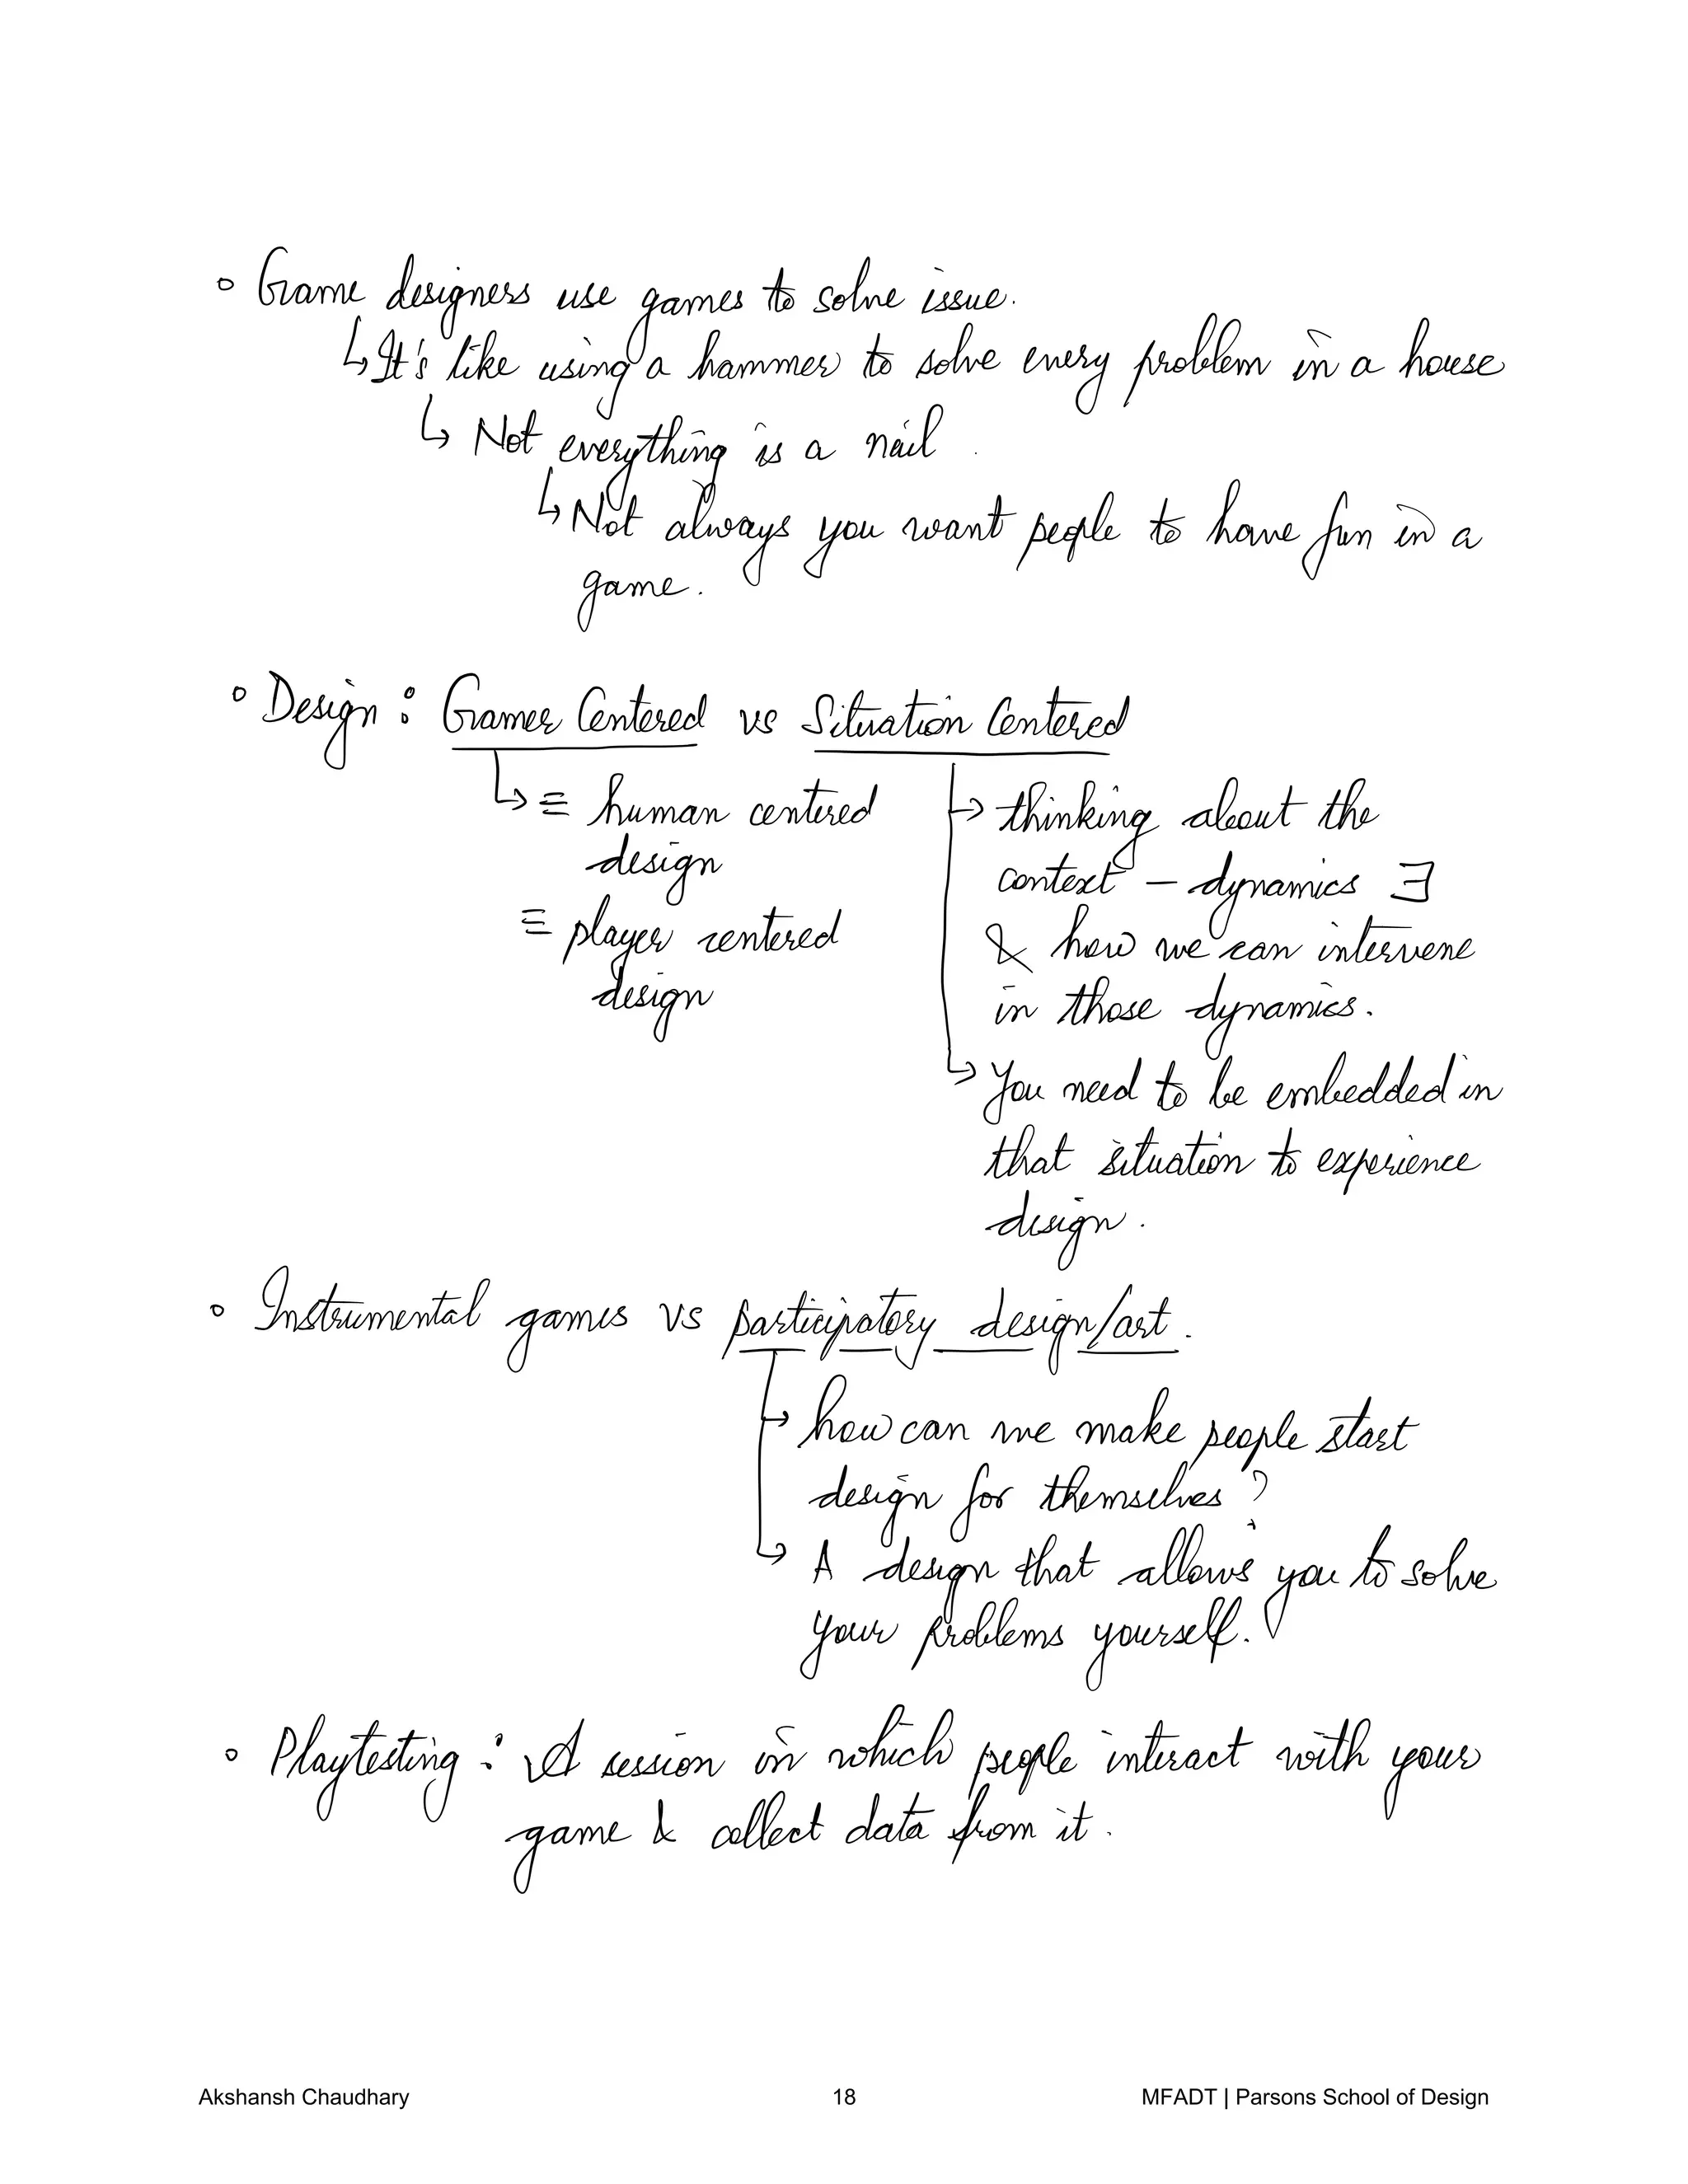 ◦ Game designers use games to solve issue.
↳ It's like using a hammer to solve every problem in a house
↳ Not everything is a nail
↳ Not always you want people to have fun in a
game.
◦ Design : Gamer Centered vs Situation Centered
↳ ≡ human centered
design
≡ player centered
design
↳ thinking about the
context – dynamics ∃
& how we can intervene
in those dynamics.
↳ You need to be embedded in
that situation to experience
design.
◦ Instrumental games vs participatory design/art.
↳ how can we make people start
design for themselves?
↳ A design that allows you to solve
your problems yourself.
◦ Playtesting : A session in which people interact with your
game & collect data from it.
Akshansh Chaudhary 18 MFADT | Parsons School of Design